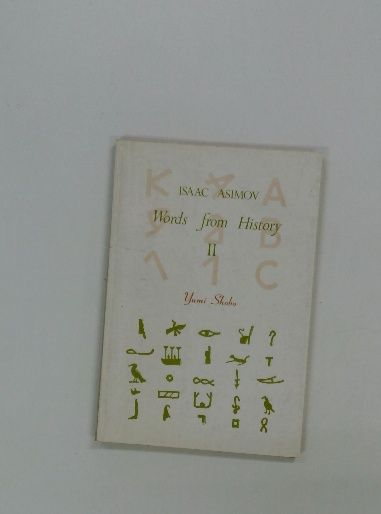 ISAAC ASIMOV
Words from History
II
Yumi Shobo